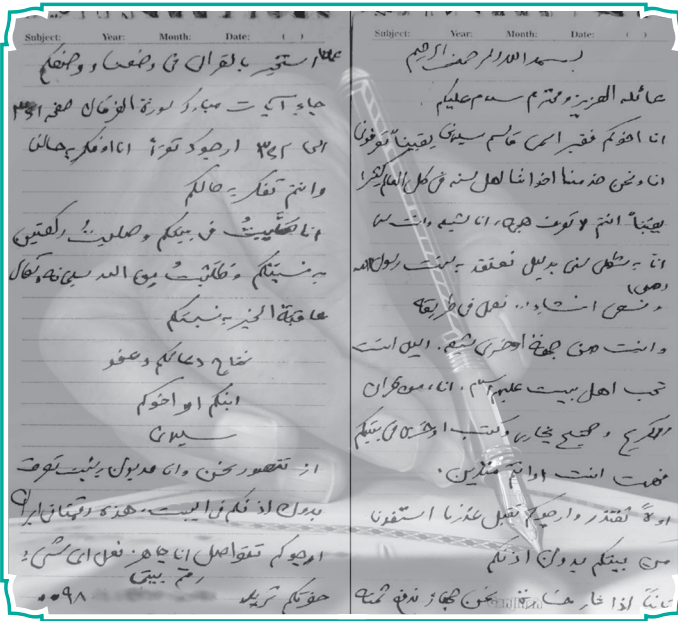 Subject: Year: Month: Date: ( )
بسم الله الرحمن الرحیم
عائله العزیز و محترم سلام علیکم
انا اخوکم فقیر اسمی قاسم سلیمانی یقیناً تعرفونا
انا و نحن خدمنا اخواننا اهل سنه فی کل العالم کثیرا
یقیناً انتم لا تعرف هی، انا شیعه و انت سنی
انا به شکل سنی بدلیل نعتقد به سنت رسول الله
(ص)
و نسعی انشاءالله نعمل فی طریقه
و انت من جهة اخری شیعه. دلیل انت
تحب اهل بیت علیهم السلام. انا، من قرآن
الکریم و صحیح بخاری و کتب اخری فی بیتکم
فهمت انت و انتم متدین.
اولاً نعتذر و ارجوکم تقبل عذرنا استفدنا
من بیتکم بدون اذنکم
ثانیاً اذا صار خسارة نحن جاهز ندفع ثمنه
Subject: Year: Month: Date: ( )
استخیر بالقرآن فی وضعنا و وضعکم
جاء آیات مبارکه سورة الفرقان صفحه
الی ارجوک تقرأ انا افکر به حالنا
و انتم تفکر به حالکم
انا صلیت فی بیتکم و صلیت رکعتین
به نسبتکم و طلبت من الله سبحانه و تعالی
عاقبة الخیر به نسبتکم
نحتاج دعائکم و عفو
ابنکم او اخوکم
سلیمانی
از نتصور نحن و انا مدیون به بیت
بدون اذنکم فی البیت، هذه رقم تلفنی ایران
ارجوکم تتواصل انا جاهز نعمل ای شیء
رقم بیتی
حضرتکم ترید ۰۰۹۸